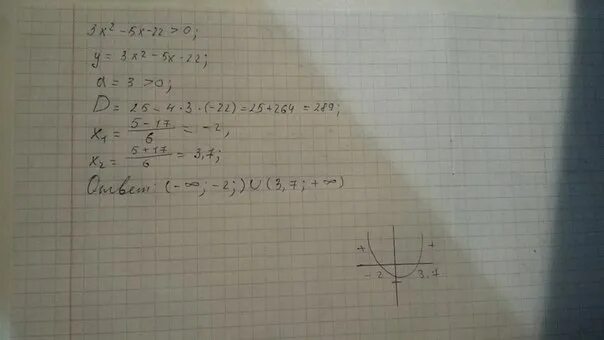 3x² - 5x - 22 > 0;
y = 3x² - 5x - 22;
a = 3 > 0;
D = 25 - 4 · 3 · (-22) = 25 + 264 = 289;
x₁ = (5 - 17)/6 = -2;
x₂ = (5 + 17)/6 = 3,7;
Ответ: (-∞; -2;) ∪ (3,7; +∞)
+ +
-2 3,7